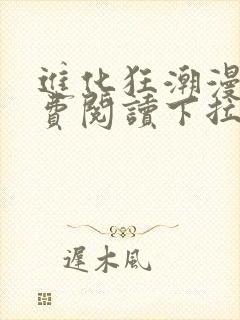 進化狂潮漫
費閱讀下拉
遲木風